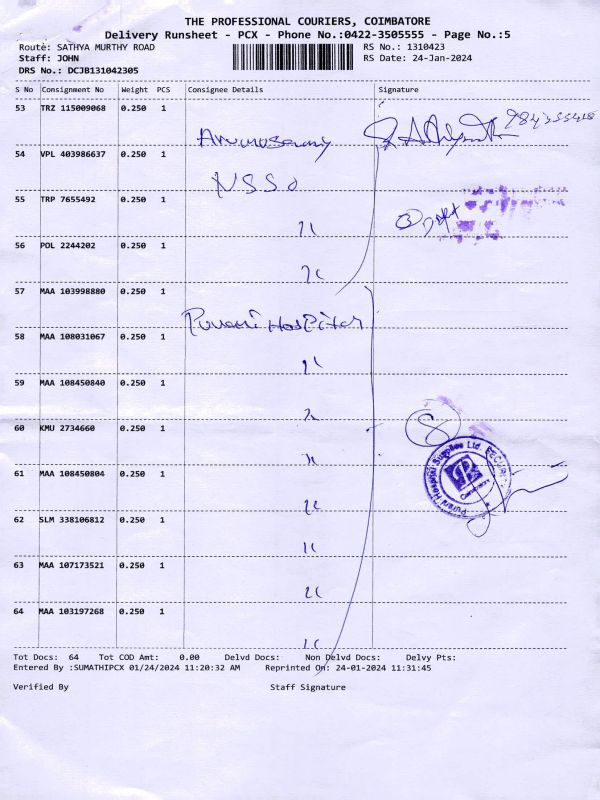 THE PROFESSIONAL COURIERS, COIMBATORE
Delivery Runsheet - PCX - Phone No.:0422-3505555 - Page No.:5
Route: SATHYA MURTHY ROAD
RS No.: 1310423
Staff: JOHN
RS Date: 24-Jan-2024
DRS No.: DCJB131042305
S No Consignment No Weight PCS Consignee Details Signature
53 TRZ 115009068 0.250 1
54 VPL 403986637 0.250 1
NSSO
55 TRP 7655492 0.250 1
56 POL 2244202 0.250 1
57 MAA 103998880 0.250 1
58 MAA 108031067 0.250 1
59 MAA 108450840 0.250 1
60 KMU 2734660 0.250 1
8
61 MAA 108450804 0.250 1
Purani Hospital Supplies Ltd. SECURITY
62 SLM 338106812 0.250 1
63 MAA 107173521 0.250 1
64 MAA 103197268 0.250 1
Tot Docs: 64 Tot COD Amt: 0.00 Delvd Docs: Non Delvd Docs: Delvy Pts:
Entered By :SUMATHIPCX 01/24/2024 11:20:32 AM Reprinted On: 24-01-2024 11:31:45
Verified By Staff Signature